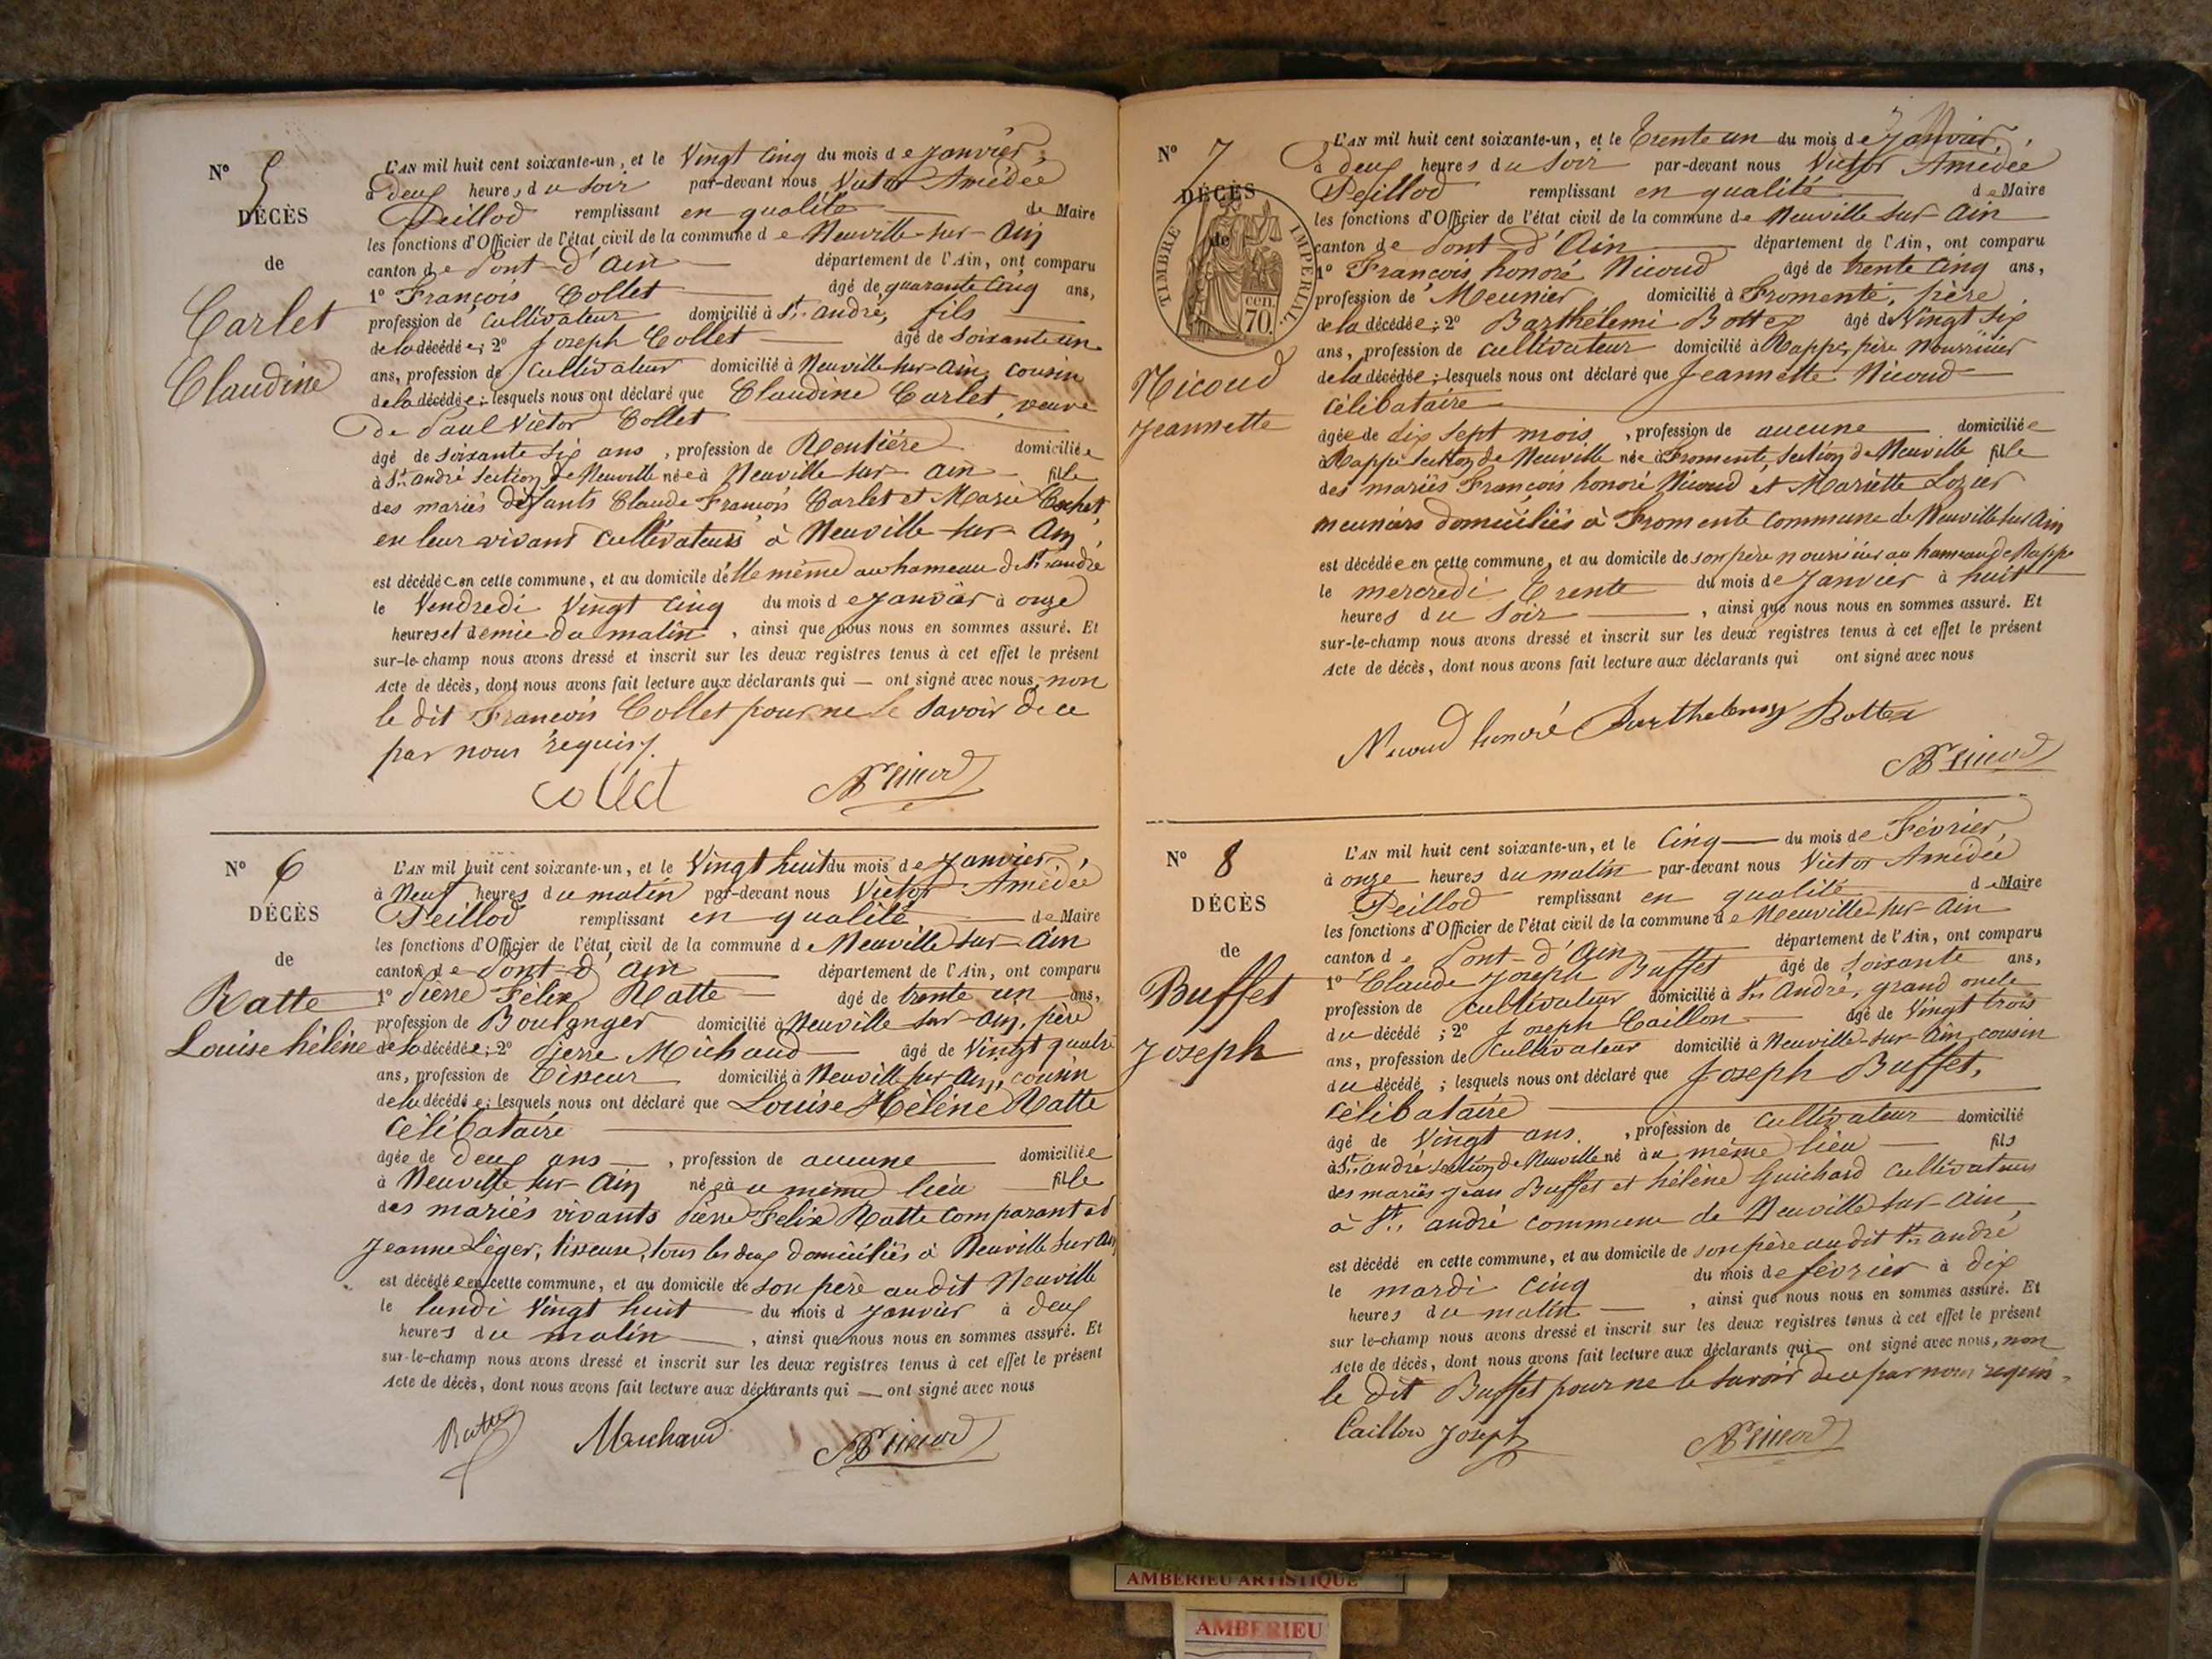 N° 5
DÉCÈS
de
Carlet
Claudine
L'AN mil huit cent soixante-un, et le Vingt Cinq du mois de Janvier,
à deux heures du Soir par-devant nous Victor Amédée
Peillod remplissant en qualité de Maire
les fonctions d'Officier de l'état civil de la commune de Neuville-sur-Ain
canton de Pont-d'Ain département de l'Ain, ont comparu
1° François Collet âgé de quarante Cinq ans,
profession de Cultivateur domicilié à St. André, fils
de la décédée; 2° Joseph Collet âgé de Soixante un
ans, profession de Cultivateur domicilié à Neuville-sur-Ain, cousin
de la décédée; lesquels nous ont déclaré que Claudine Carlet, veuve
de Paul Victor Collet
âgé de soixante six ans, profession de Rentière domiciliée
à St. André Section de Neuville née à Neuville sur Ain fille
des mariés défunts Claude François Carlet et Marie Cochet,
en leur vivant Cultivateurs à Neuville-sur-Ain,
est décédée en cette commune, et au domicile d'elle même au hameau de St. André
le Vendredi Vingt Cinq du mois de Janvier à onze
heures et demie du matin, ainsi que nous nous en sommes assuré. Et
sur-le-champ nous avons dressé et inscrit sur les deux registres tenus à cet effet le présent
Acte de décès, dont nous avons fait lecture aux déclarants qui — ont signé avec nous, non
le dit François Collet pour ne le Savoir de ce
par nous requis.
Collet
N° 6
DÉCÈS
de
Ratte
Louise hélène
L'AN mil huit cent soixante-un, et le Vingt huit du mois de Janvier,
à Neuf heures du matin par-devant nous Victor Amédée
Peillod remplissant en qualité de Maire
les fonctions d'Officier de l'état civil de la commune de Neuville sur-Ain
canton de Pont-d'Ain département de l'Ain, ont comparu
1° Pierre Félix Ratte âgé de trente un ans,
profession de Boulanger domicilié à Neuville sur-Ain, père
de la décédée; 2° Pierre Michaud âgé de Vingt quatre
ans, profession de Tisseur domicilié à Neuville sur Ain, cousin
de la décédée; lesquels nous ont déclaré que Louise Hélène Ratte
Célibataire
âgée de deux ans, profession de aucune domiciliée
à Neuville sur-Ain née au même lieu fille
des mariés vivants Pierre Felix Ratte comparant et
Jeanne Léger, tisseuse, tous les deux domiciliés à Neuville sur Ain
est décédée en cette commune, et au domicile de son père au dit Neuville
le lundi Vingt huit du mois d Janvier à deux
heures du matin, ainsi que nous nous en sommes assuré. Et
sur-le-champ nous avons dressé et inscrit sur les deux registres tenus à cet effet le présent
Acte de décès, dont nous avons fait lecture aux déclarants qui — ont signé avec nous
Ratte Michaud
N° 7
DÉCÈS
de
TIMBRE IMPÉRIAL
70 cen.
Nicoud
Jeannette
L'AN mil huit cent soixante-un, et le Trente un du mois de Janvier,
à deux heures du Soir par-devant nous Victor Amédée
Peillod remplissant en qualité de Maire
les fonctions d'Officier de l'état civil de la commune de Neuville sur-Ain
canton de Pont-d'Ain département de l'Ain, ont comparu
1° François honoré Nicoud âgé de trente Cinq ans,
profession de Meunier domicilié à Fromente, père
de la décédée; 2° Barthélemi Bottex âgé de Vingt Six
ans, profession de Cultivateur domicilié à Rappe, père Nourricier
de la décédée; lesquels nous ont déclaré que Jeannette Nicoud
Célibataire
âgée de dix Sept mois, profession de aucune domiciliée
à Rappe Section de Neuville née à Fromente, Section de Neuville fille
des mariés François honoré Nicoud et Mariette Lozier
meuniers domiciliés à Fromente Commune de Neuville sur Ain
est décédée en cette commune, et au domicile de son père nourricier au hameau de Rappe
le mercredi Trente du mois de Janvier à huit
heures du Soir, ainsi que nous nous en sommes assuré. Et
sur-le-champ nous avons dressé et inscrit sur les deux registres tenus à cet effet le présent
Acte de décès, dont nous avons fait lecture aux déclarants qui ont signé avec nous
Nicoud honoré Barthelemy Bottex
N° 8
DÉCÈS
de
Buffet
Joseph
L'AN mil huit cent soixante-un, et le Cinq du mois de Février,
à onze heures du matin par-devant nous Victor Amédée
Peillod remplissant en qualité de Maire
les fonctions d'Officier de l'état civil de la commune de Neuville-sur-Ain
canton de Pont-d'Ain département de l'Ain, ont comparu
1° Claude Joseph Buffet âgé de soixante ans,
profession de Cultivateur domicilié à St. André, grand oncle
du décédé; 2° Joseph Caillon âgé de Vingt trois
ans, profession de Cultivateur domicilié à Neuville-sur-Ain, cousin
du décédé; lesquels nous ont déclaré que Joseph Buffet,
Célibataire
âgé de Vingt ans, profession de Cultivateur domicilié
à St. André section de Neuville né au même lieu fils
des mariés Jean Buffet et hélène Guichard Cultivateurs
à St. André commune de Neuville sur-Ain,
est décédé en cette commune, et au domicile de son père au dit St. André
le mardi Cinq du mois de février à dix
heures du matin, ainsi que nous nous en sommes assuré. Et
sur le-champ nous avons dressé et inscrit sur les deux registres tenus à cet effet le présent
Acte de décès, dont nous avons fait lecture aux déclarants qui — ont signé avec nous, non
le dit Buffet pour ne le savoir de ce par nous requis.
Caillon Joseph
AMBERIEU ARTISTIQUE
AMBERIEU